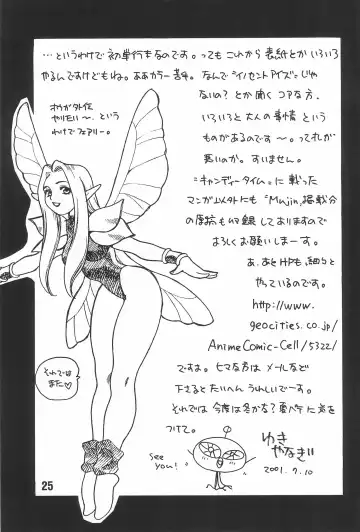 …というわけで初単行本なのです。ってもこれから表紙とかいろいろ
やるんですけどもね。ああカラー苦手。なんで『イノセントアイズ』じゃ
ないの？とか聞くコアな方、
いろいろと大人の事情という
ものがあるのです〜。ってそれが
悪いのか。すいません。
『キャンディータイム』に載った
マンガ以外にも『Mujin』掲載分
の原稿も収録しておりますので
よろしくお願いしまーす。
あ、あとHPも細々と
やっているのです。
http://www.
geocities.co.jp/
AnimeComic-Cell/5322/
ですよ。ヒマな方はメールなど
下さるとたいへんうれしいでーす。
それでは今度は冬かな？夏バテに気を
つけて。
やりたい〜。という
わけでフェアリー。
それでは
また♡
see
you!
ゆき
やなぎ
2001.7.10
25